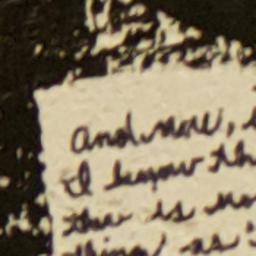 And now,
I know th
there is no
thing as